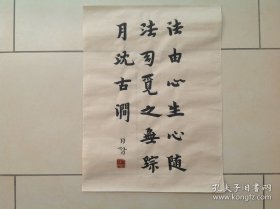 法由心生心随
法不觅之无踪
月沈古澗
孔夫子旧书网